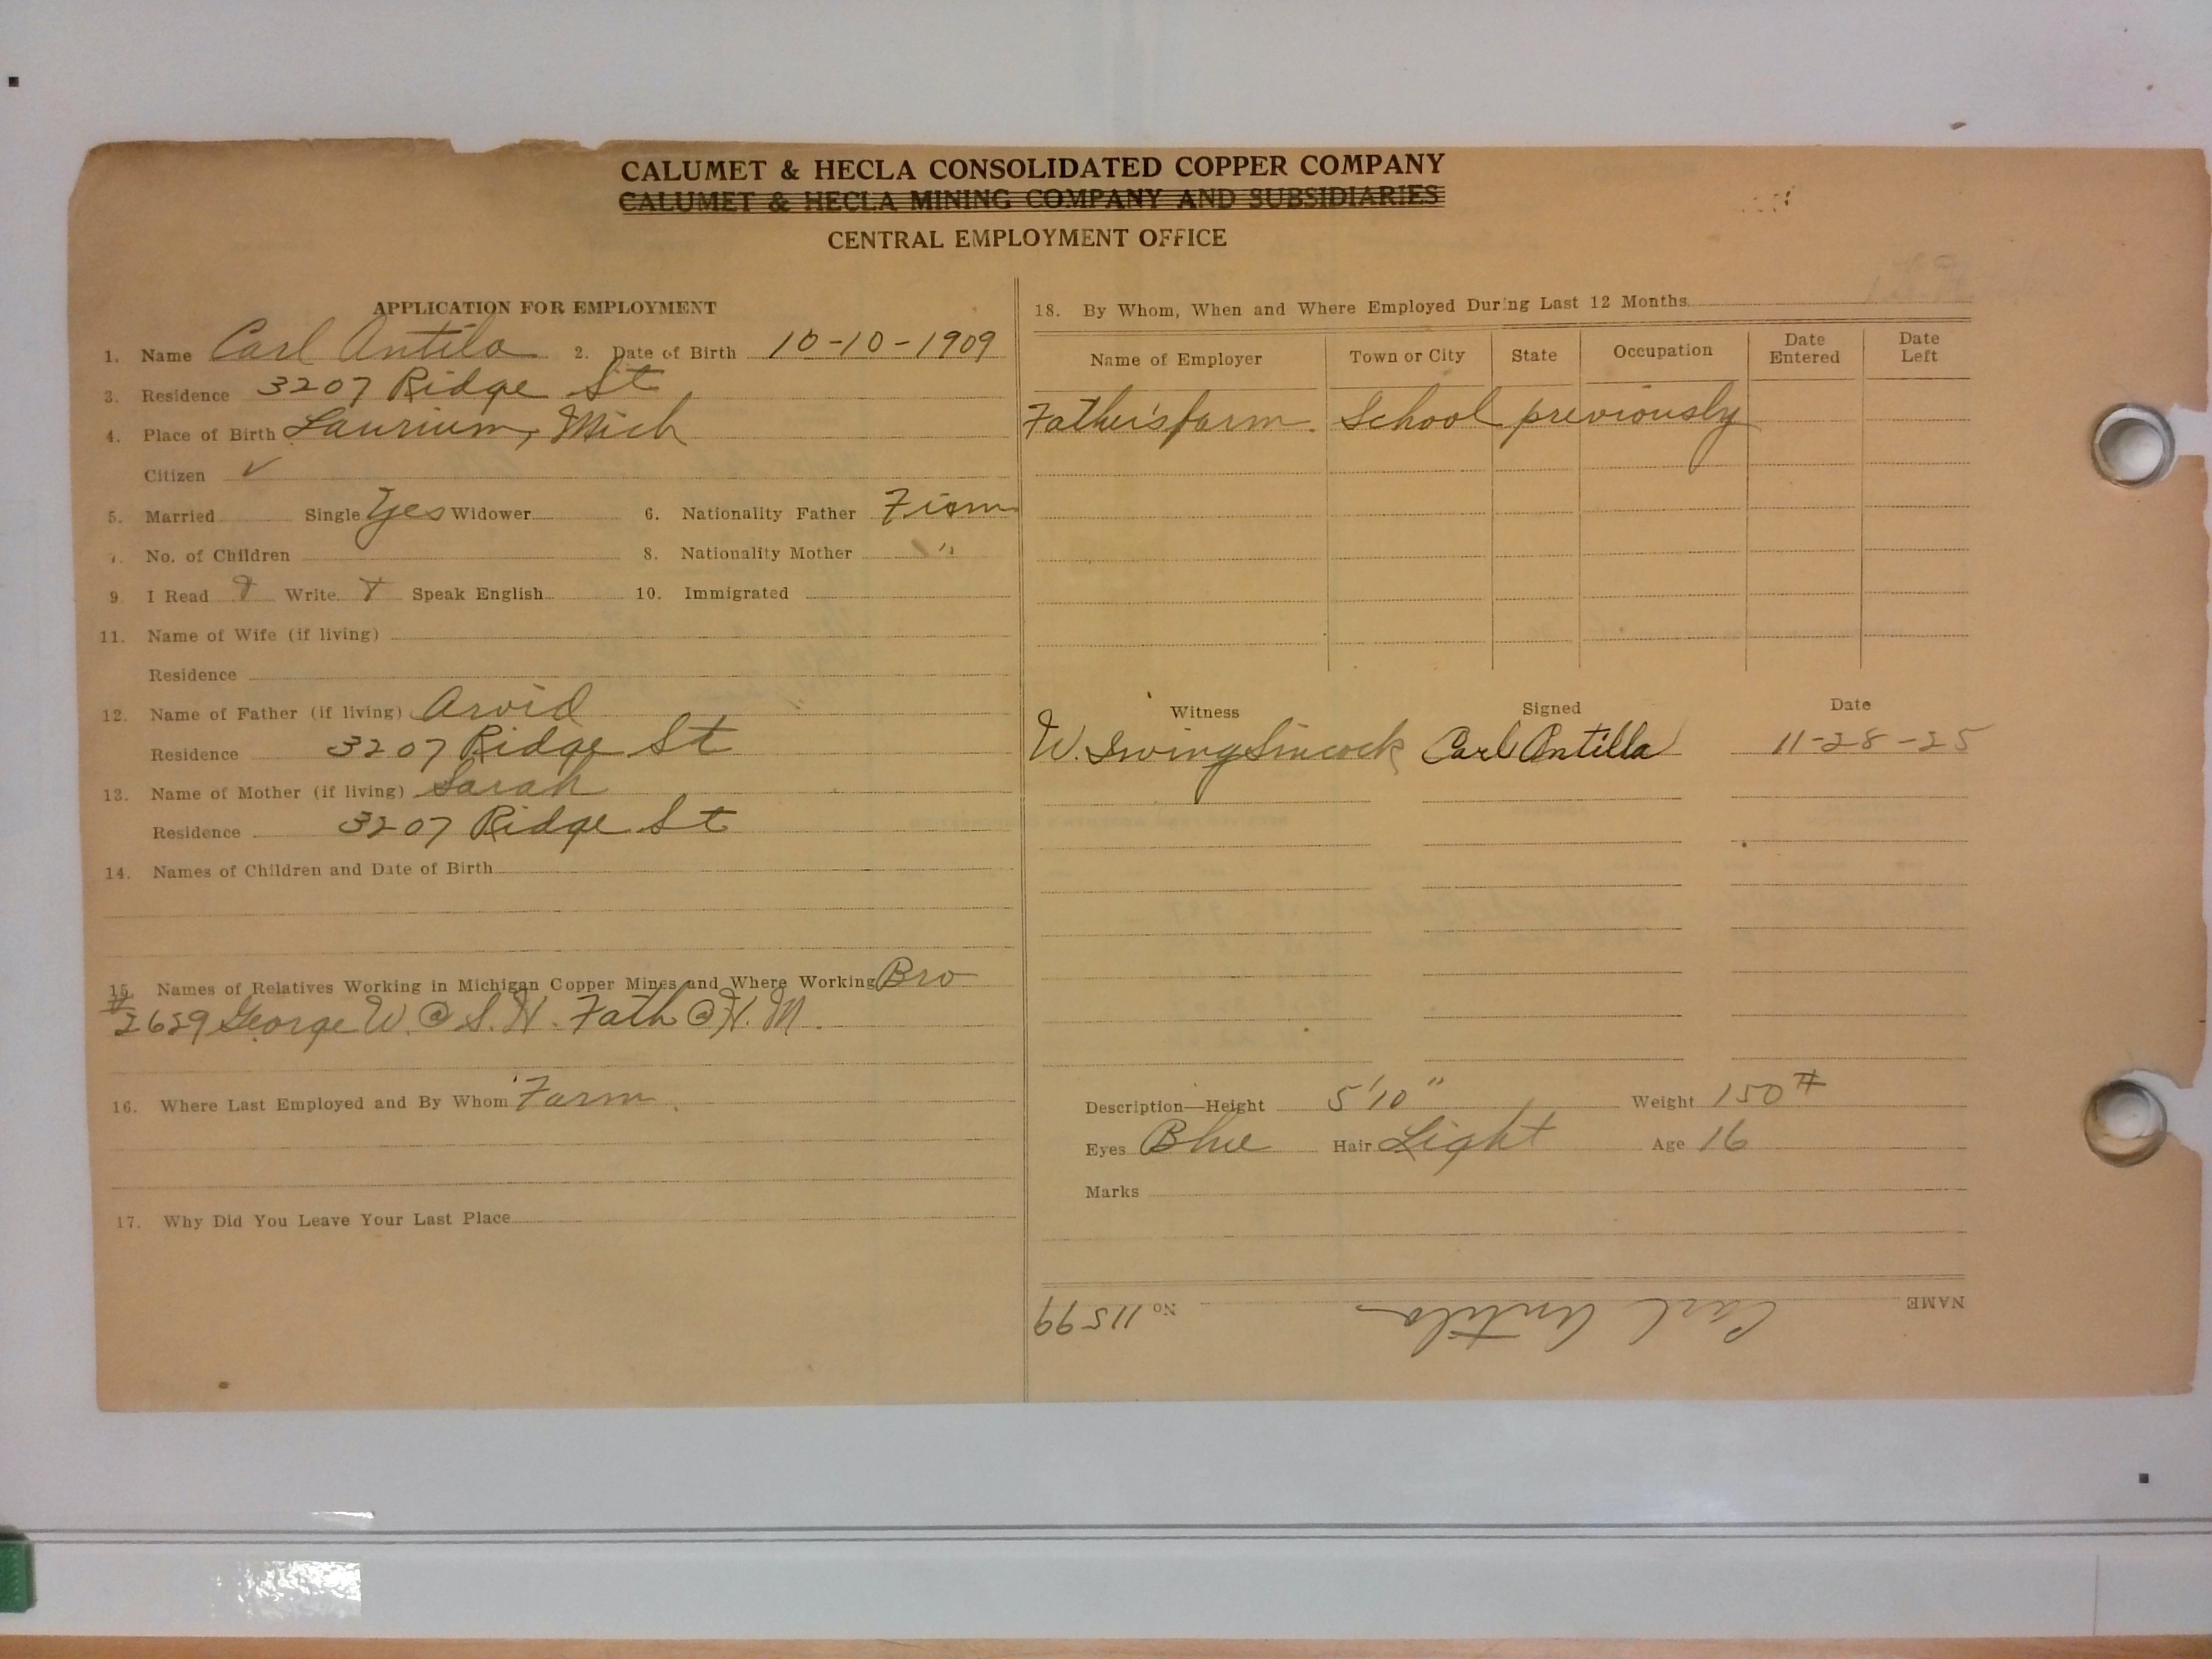 CALUMET & HECLA CONSOLIDATED COPPER COMPANY
CALUMET & HECLA MINING COMPANY AND SUBSIDIARIES
CENTRAL EMPLOYMENT OFFICE
APPLICATION FOR EMPLOYMENT
1. Name Carl Antila 2. Date of Birth 10-10-1909
3. Residence 3207 Ridge St
4. Place of Birth Laurium, Mich
Citizen ✓
5. Married Single Yes Widower 6. Nationality Father Finn
7. No. of Children 8. Nationality Mother "
9. I Read Write Speak English 10. Immigrated
11. Name of Wife (if living)
Residence
12. Name of Father (if living) Arvid
Residence 3207 Ridge St
13. Name of Mother (if living) Sarah
Residence 3207 Ridge St
14. Names of Children and Date of Birth
15. Names of Relatives Working in Michigan Copper Mines and Where Working Bro
# 2629 George W. @ S. H. Fath @ H. M.
16. Where Last Employed and By Whom Farm.
17. Why Did You Leave Your Last Place
18. By Whom, When and Where Employed During Last 12 Months
Name of Employer Town or City State Occupation Date Entered Date Left
Father's farm. School previously
Witness Signed Date
W. Irving Sincock Carl Antilla 11-28-25
Description—Height 5'10" Weight 150#
Eyes Blue Hair Light Age 16
Marks
NAME Carl Antila No 11599